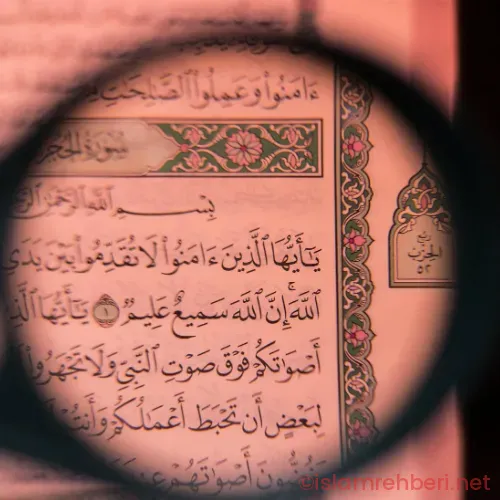 ءَامَنُوا۟ وَعَمِلُوا۟ ٱلصَّـٰلِحَـٰتِ
سُورَةُ الحُجُرَ
بِسْمِ ٱللَّهِ ٱلرَّحْمَـٰنِ
يَـٰٓأَيُّهَا ٱلَّذِينَ ءَامَنُوا۟ لَا تُقَدِّمُوا۟ بَيْنَ يَدَىِ
ٱللَّهَ ۚ إِنَّ ٱللَّهَ سَمِيعٌ عَلِيمٌ ١ يَـٰٓأَيُّهَا
أَصْوَٰتَكُمْ فَوْقَ صَوْتِ ٱلنَّبِىِّ وَلَا تَجْهَرُوا۟
لِبَعْضٍ أَن تَحْبَطَ أَعْمَـٰلُكُمْ وَأَنتُمْ
يَغُضُّونَ أَصْوَٰتَهُمْ
ربع
الحزب
٥٢
©islamrehberi.net